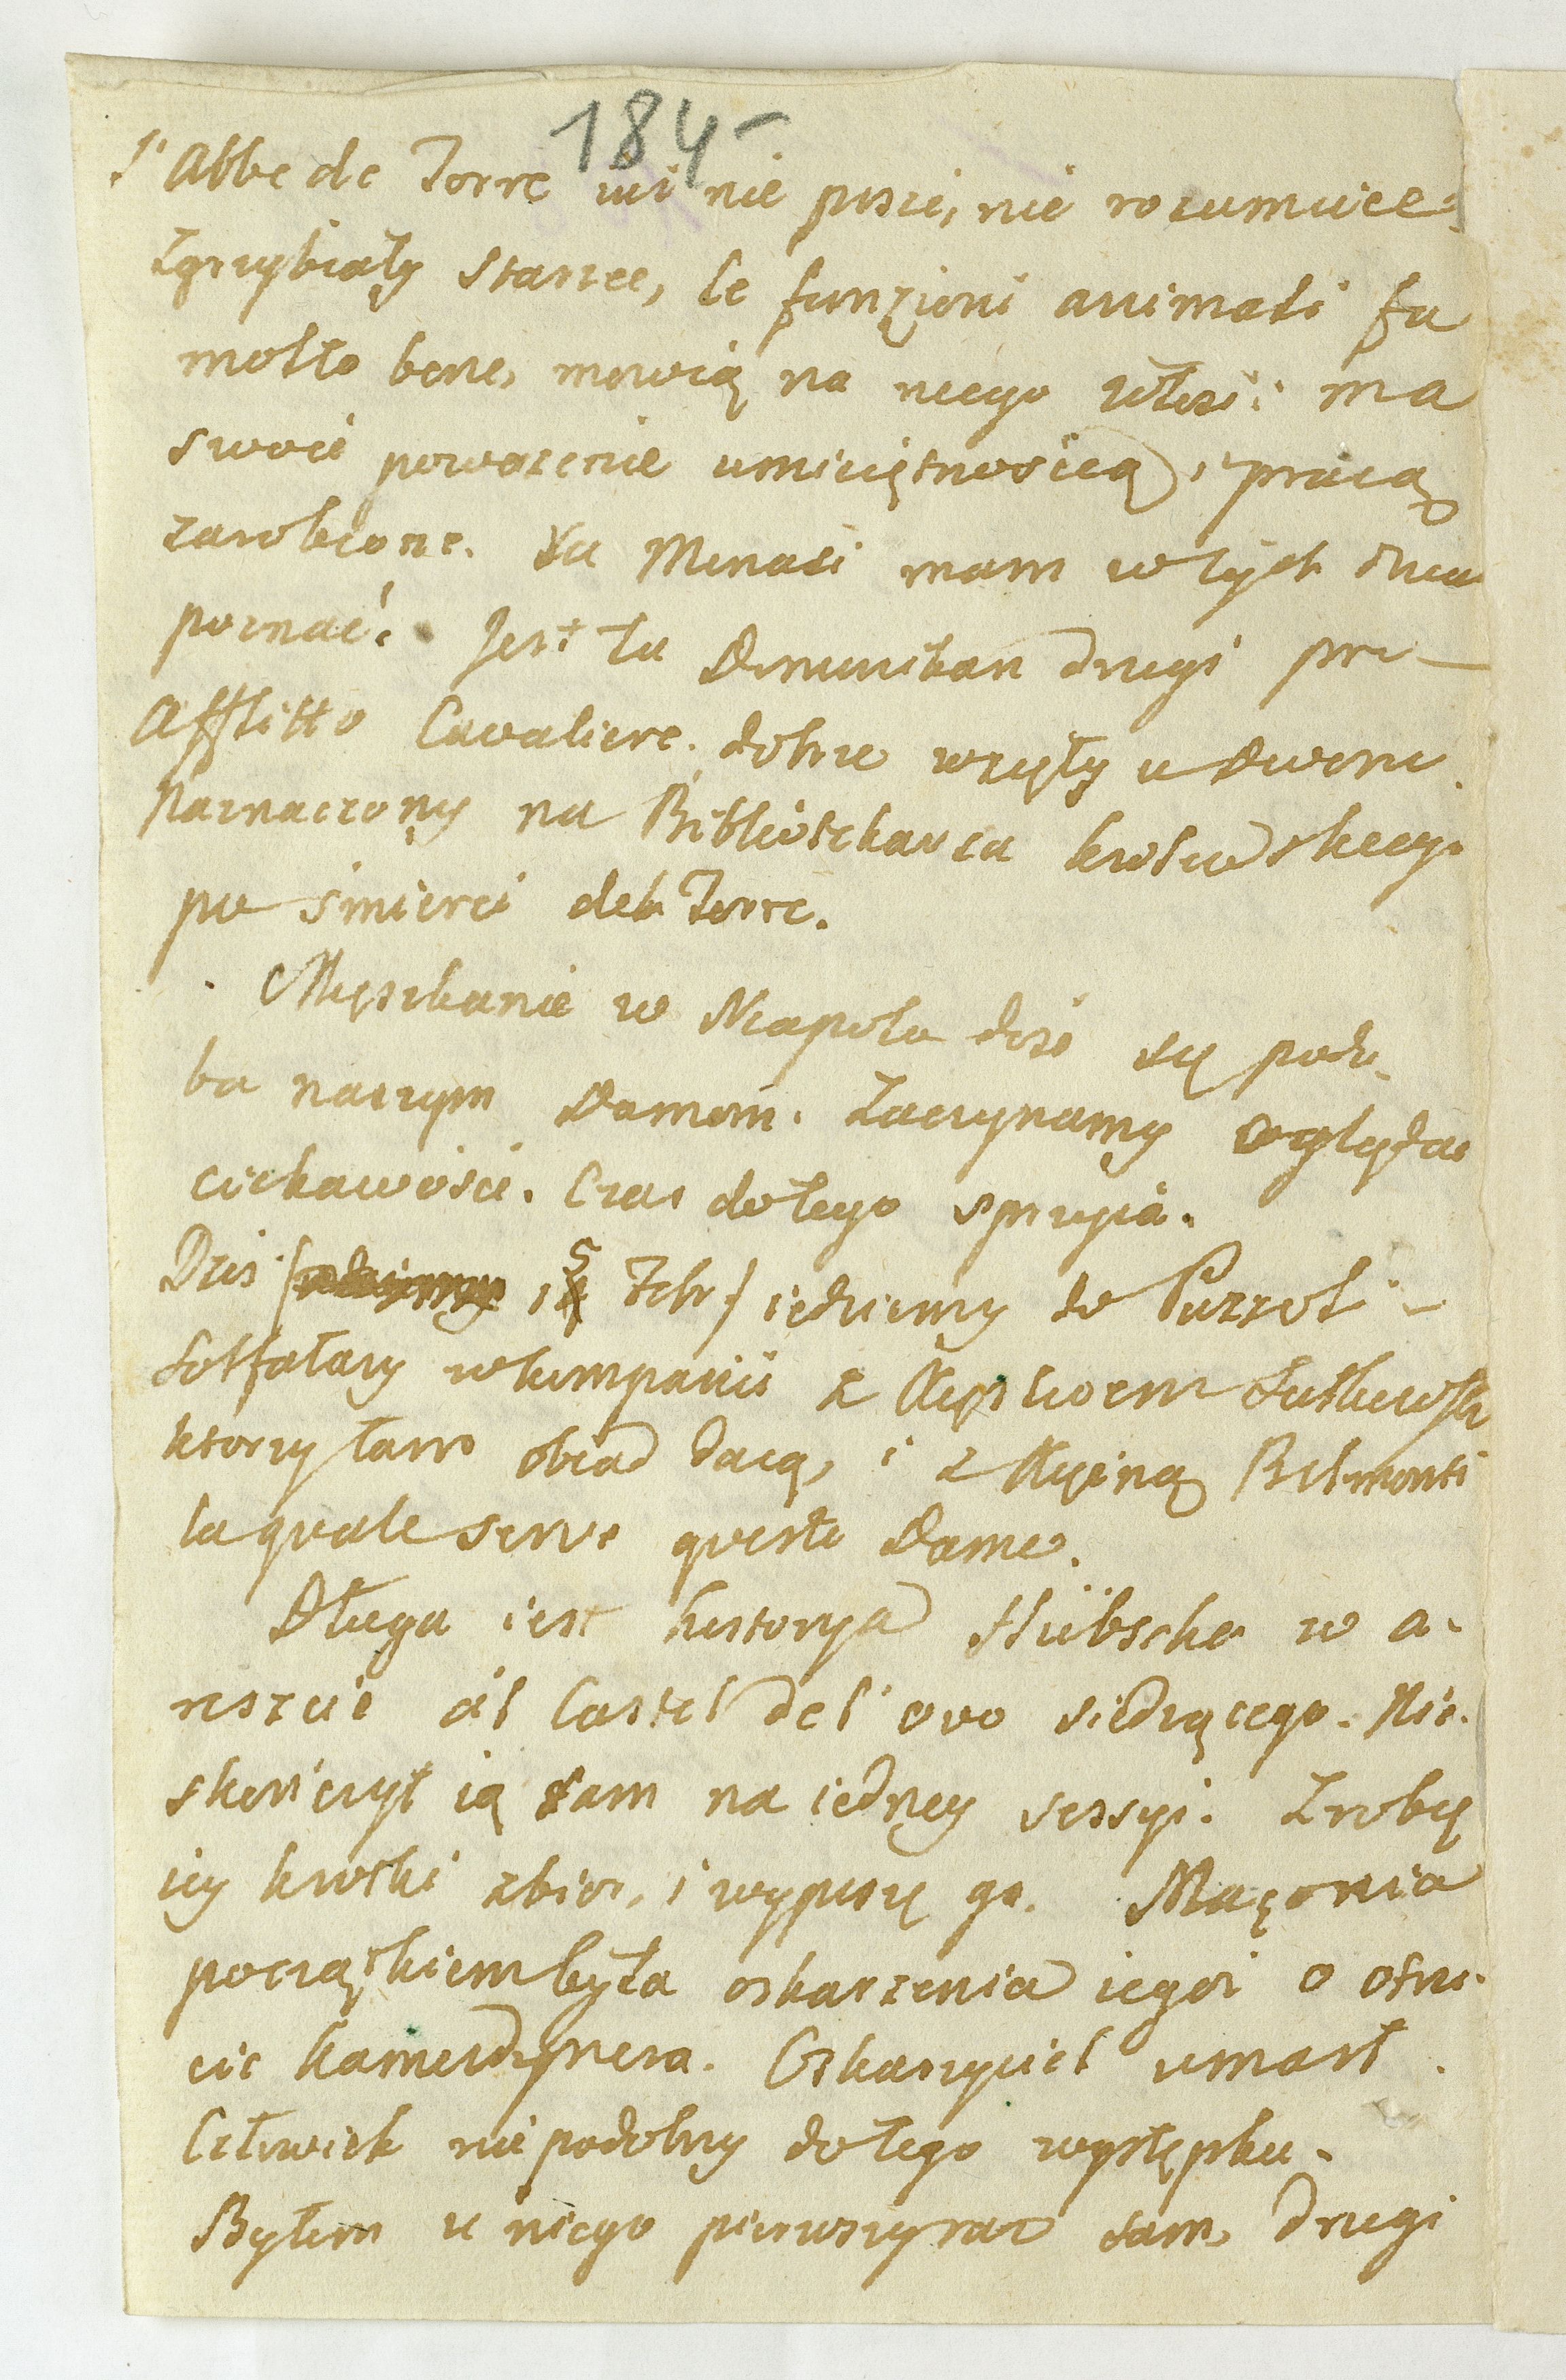 184
l'Abbe de Torre iuż nie pisze, nie rozumuie.
Zgrzybiały starzec, le funzioni animali fa
molto bene, mowią na niego włosi: ma
swoie poważenie umieiętnością, i pracą
zarobione. Xa Minasi mam w tych dniach
poznać. Jest tu Dominikan drugi pre
Afflitto Cavaliere. dobrze wzięty u Dworu.
Naznaczony na Bibliotekarza krolewskiego
po śmierci dela Torre.
Mięszkanie w Neapolu dość się podo
ba naszym Damom. Zaczynamy oglądać
ciekawości. Czas do tego sprzyia.
Dziś / 15 Febr / iedziemy do Puzzoli
Solfatary w kompanii z Xięstwem Sułkowski
ktorzy tam obiad dacą, i z Xiężną Belmonti
la quale serve queste Dame.
Długa iest historya Hübscha w a-
reszcie al Castel del' ovo siedzącego. Nie
skończył ią sam na iedney sessyi. Zrobię
iey krotki zbior, i wypiszę go. Maçonia
początkiem była oskarżenia iegoż o otru-
cie kamerdynera. Oskarżyciel umarł.
Człowiek nie podobny do tego występku.
Byłem u niego pierwszy raz sam, drugi